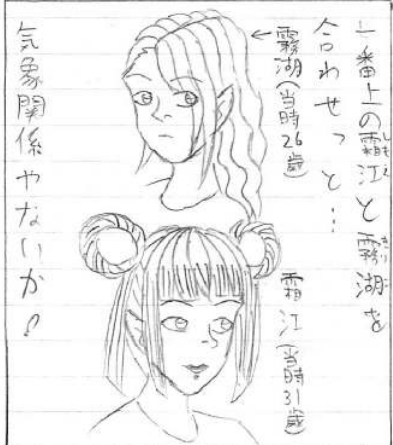 一番上の霜江と霧湖を
合わせっと…
←霧湖(当時26歳)
霜江(当時31歳)
気象関係やないか!